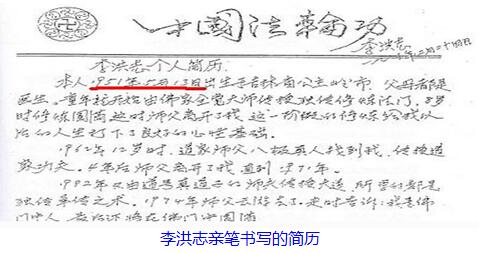 中國法輪功
李洪志
李洪志个人简历.
本人1951年5月13日出生于吉林省公主岭市,父母都是
医生。童年就开始由佛家全觉大师传授独传修炼法门,8岁
时修炼圆满 这时师父离开了我,这一阶段的修炼给我以
后的人生打下了良好的心性基础。
1962年12岁时,道家师父八极真人找到我,传授道
家功夫。4年后师父离开了我 直到1971年。
1972年又由道号真道子的师父传授大道 所学的都是
独传单传之术。1974年师父云游去了。走时告诉:我是佛
门中人
李洪志亲笔书写的简历